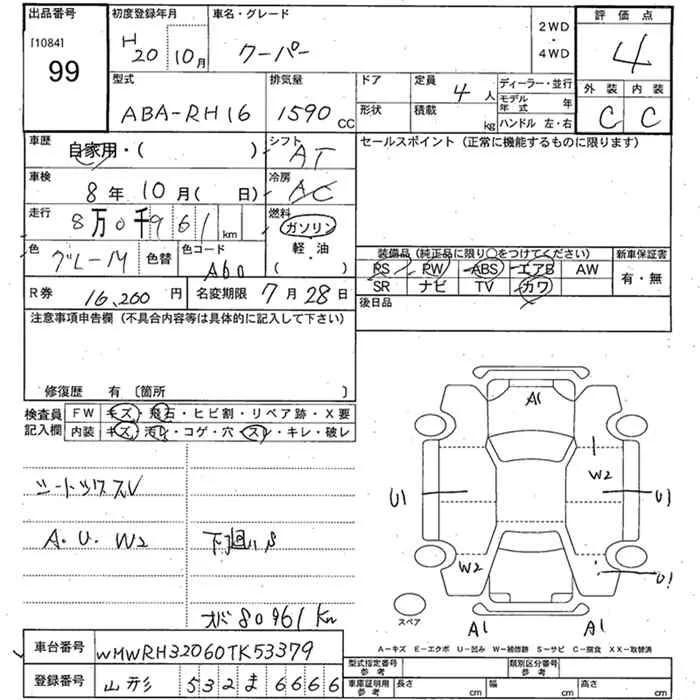 出品番号 初度登録年月 車名・グレード 2WD・4WD 評価点
[1084] 99 H20 10月 クーパー 4
型式 排気量 ドア 定員 4人 ディーラー・並行 外装 内装
ABA-RH16 1590cc 形状 積載 kg モデル年式 年 C C
ハンドル 左・右
車歴 自家用・( ) シフト AT セールスポイント (正常に機能するものに限ります)
車検 8年10月( 日) 冷房 AC
走行 8万0千961km 燃料 ガソリン
軽・油
( )
色 グレーM 色替 色コード A60 装備品(純正品に限り○をつけてください) 新車保証書
PS PW ABS エアB AW 有・無
R券 16,200円 名変期限 7月28日 SR ナビ TV カワ
注意事項申告欄 (不具合内容等は具体的に記入して下さい) 後日品
修復歴 有 〔箇所 〕
検査員記入欄 FW キズ・飛石・ヒビ割・リペア跡・X要
内装 キズ・汚レ・コゲ・穴・スレ・キレ・破レ
A1
W2
U1 U1
A. U. W2 下廻りS
W2 U1
A1 A1
スペア
メーター 80961km
A-キズ E-エクボ U-凹み W-補修跡 S-サビ C-腐食 XX-取替済
車台番号 WMWRH32060TK53379
型式指定番号参考 類別区分番号参考
登録番号 山形 532 ま 6666
車庫証明用参考 長さ cm 幅 cm 高さ cm